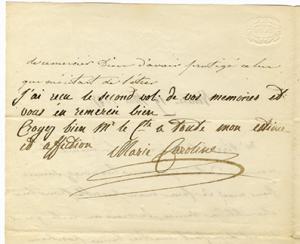 de remercier Dieu d'avoir protégé celui
qui méritait de l'être
J'ai recu le second vol. de vos memoires et
vous en remercie bien
Croyez bien Mr le Cte a toute mon estime
et affection
Marie Caroline